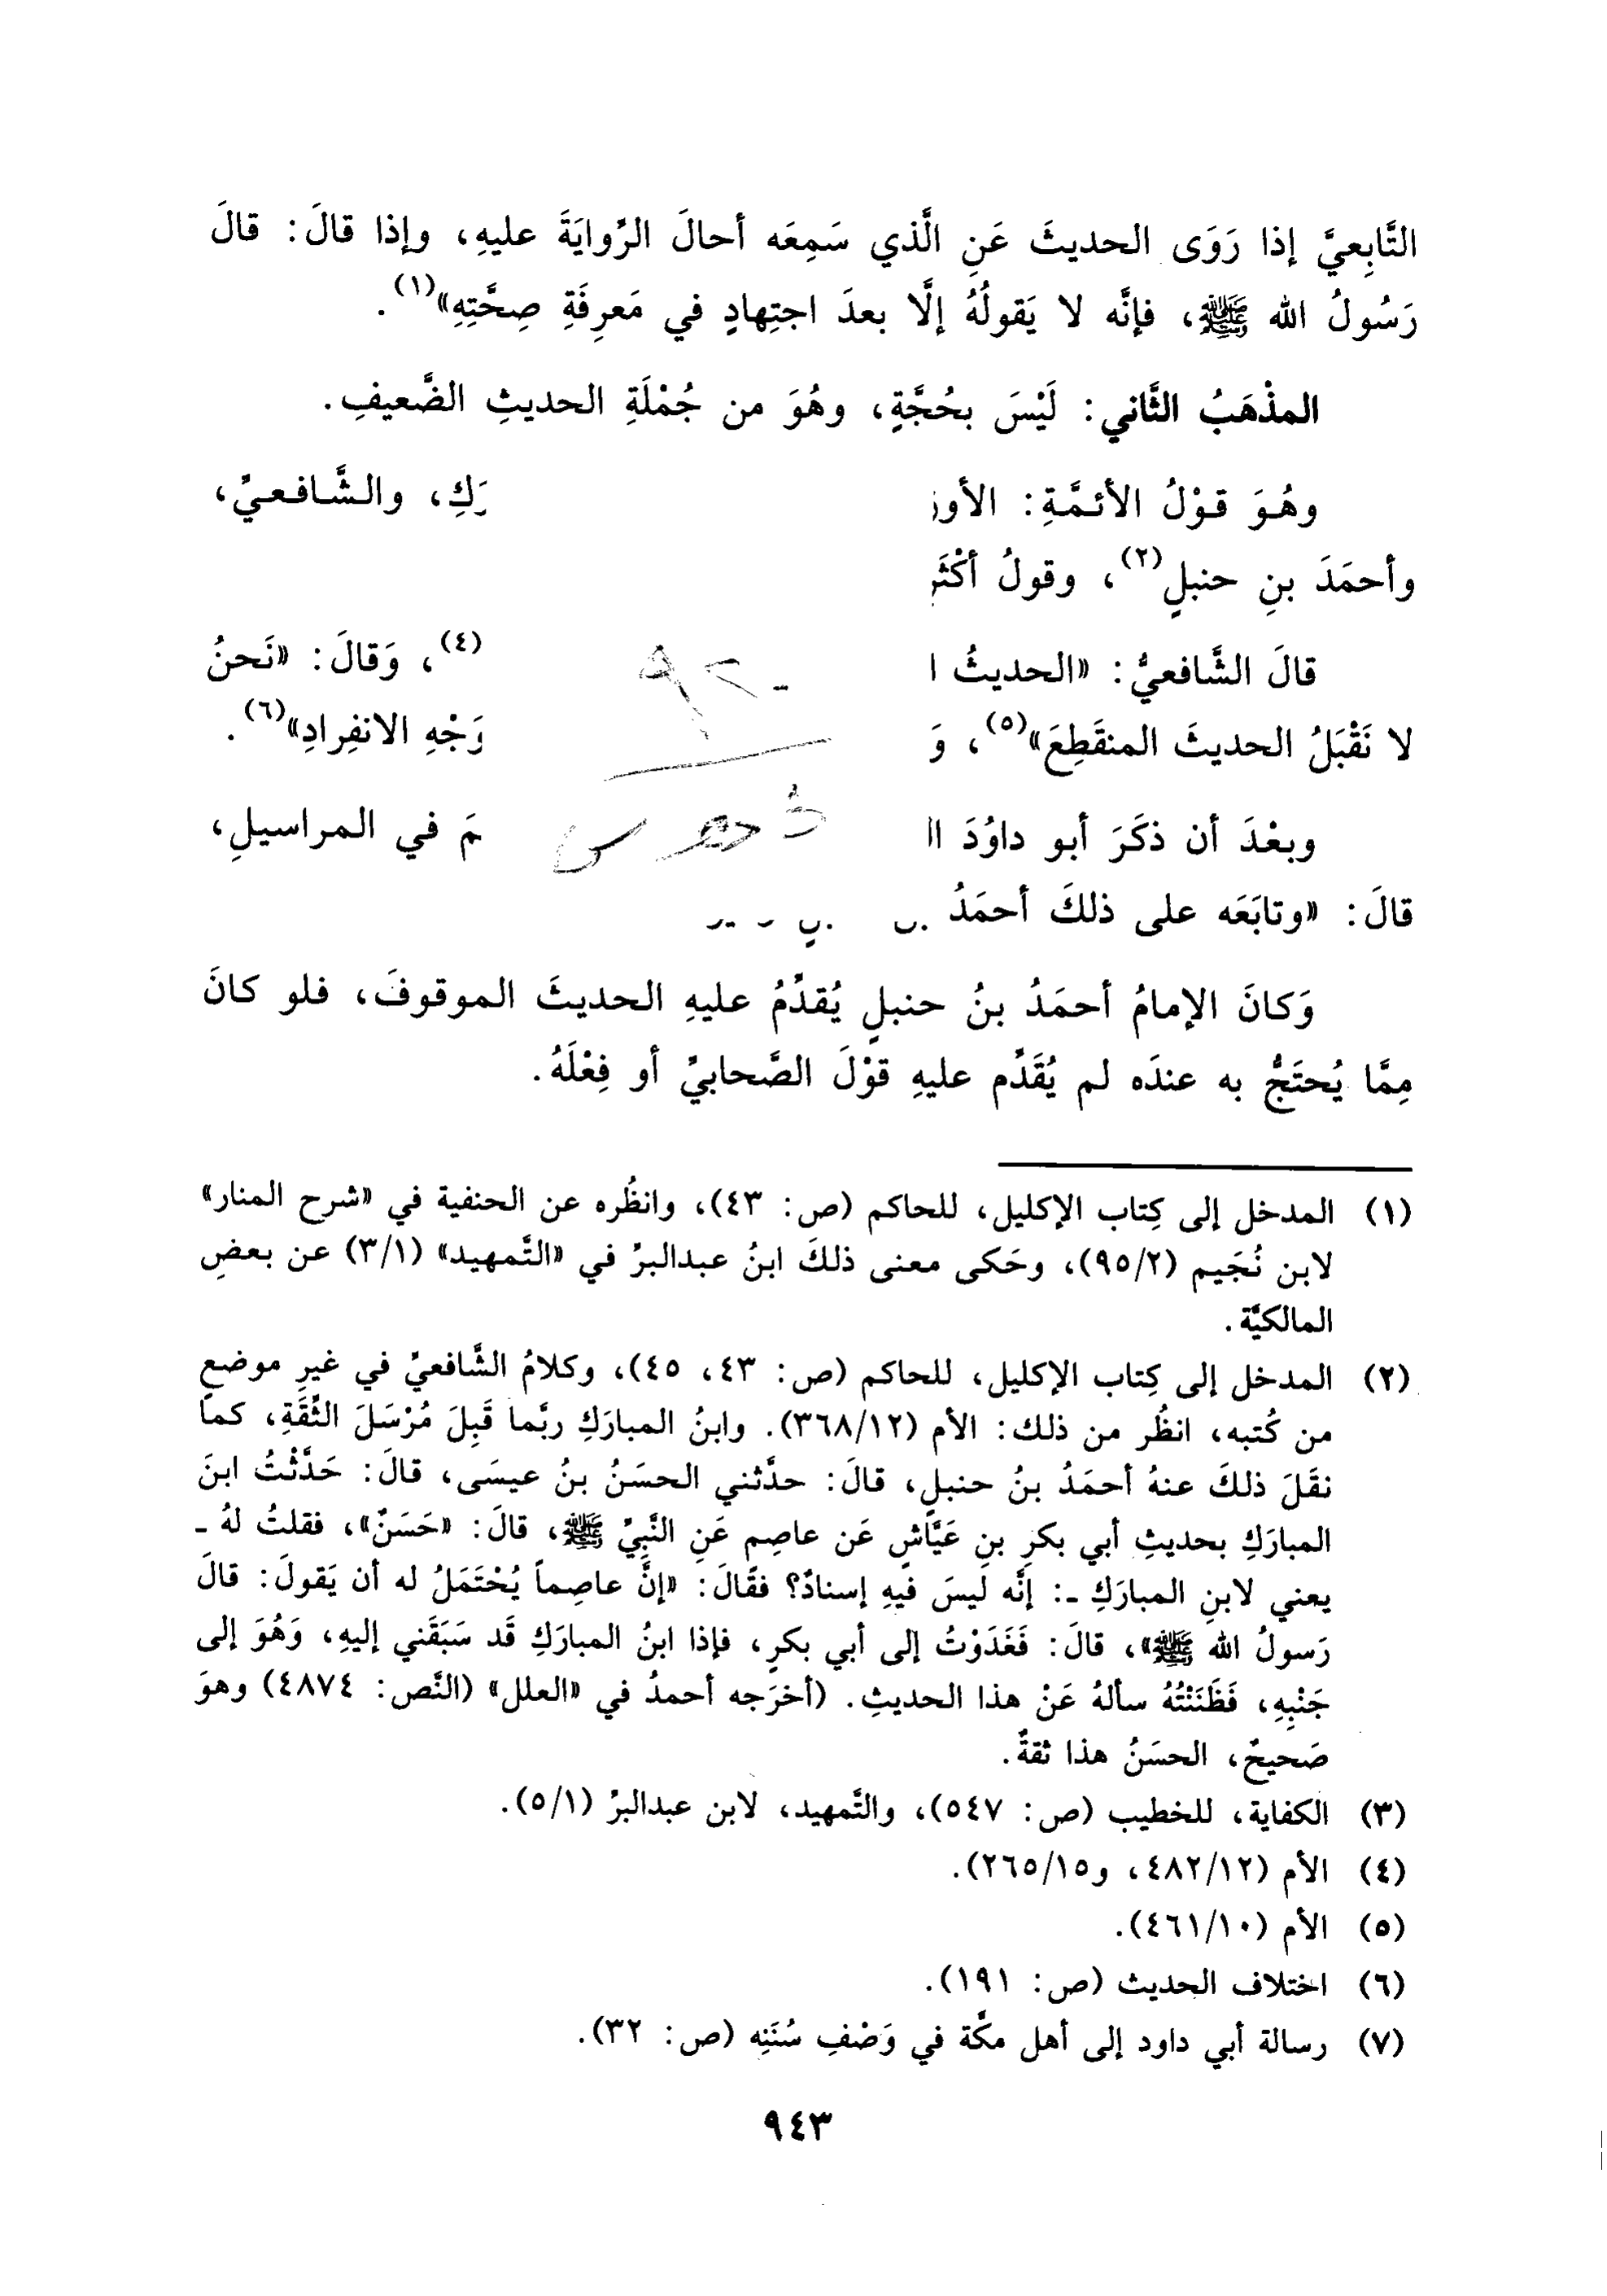 التَّابِعيَّ إذا رَوَى الحديثَ عَنِ الَّذي سَمِعَه أحالَ الرِّوايَةَ عليهِ، وإذا قالَ: قالَ
رَسُولُ الله ﷺ، فإنَّه لا يَقولُهُ إلَّا بعدَ اجتِهادٍ في مَعرِفَةِ صِحَّتِهِ»(١).
المذْهَبُ الثَّاني: لَيْسَ بحُجَّةٍ، وهُوَ من جُمْلَةِ الحديثِ الضَّعيفِ.
وهُوَ قوْلُ الأئمَّةِ: والشَّافعيِّ،
وأحمَدَ بنِ حنبلٍ(٢)، وقولُ أكْثَرِ
قالَ الشَّافعيُّ: «الحديثُ (٤)، وَقالَ: «نَحنُ
لا نَقْبَلُ الحديثَ المنقَطِعَ»(٥)، وَ وَجْهِ الانفِرادِ»(٦).
وبعْدَ أن ذكَرَ أبو داوُدَ في المراسيلِ،
قالَ: «وتابَعَه على ذلكَ أحمَدُ
وَكانَ الإمامُ أحمَدُ بنُ حنبلٍ يُقدِّمُ عليهِ الحديثَ الموقوفَ، فلو كانَ
مِمَّا يُحتَجُّ به عندَه لم يُقَدِّم عليهِ قوْلَ الصَّحابيِّ أو فِعْلَهُ.
(١) المدخل إلى كِتاب الإكليل، للحاكم (ص: ٤٣)، وانظُره عن الحنفية في «شرح المنار»
لابن نُجَيم (٩٥/٢)، وحَكى معنى ذلكَ ابنُ عبدالبرِّ في «التَّمهيد» (٣/١) عن بعضِ
المالكيَّة.
(٢) المدخل إلى كِتاب الإكليل، للحاكم (ص: ٤٣، ٤٥)، وكلامُ الشَّافعيِّ في غيرِ موضعٍ
من كُتبه، انظُر من ذلك: الأم (٣٦٨/١٢). وابنُ المبارَكِ ربَّما قَبِلَ مُرْسَلَ الثِّقَةِ، كما
نقَلَ ذلكَ عنهُ أحمَدُ بنُ حنبلٍ، قالَ: حدَّثني الحسَنُ بنُ عيسَى، قالَ: حَدَّثْتُ ابنَ
المبارَكِ بحديثِ أبي بكرِ بنِ عَيَّاشٍ عَن عاصِمٍ عَنِ النَّبِيِّ ﷺ، قالَ: «حَسَنٌ»، فقلتُ لهُ ـ
يعني لابنِ المبارَكِ ـ: إنَّه ليسَ فيهِ إسنادٌ؟ فقَالَ: «إنَّ عاصِماً يُحْتَمَلُ له أن يَقولَ: قالَ
رَسولُ الله ﷺ»، قالَ: فَغَدَوْتُ إلى أبي بكرٍ، فإذا ابنُ المبارَكِ قَد سَبَقَني إليهِ، وَهُوَ إلى
جَنْبِهِ، فَظَنَنْتُهُ سألهُ عَنْ هذا الحديثِ. (أخرَجه أحمدُ في «العلل» (النَّص: ٤٨٧٤) وهوَ
صَحيحٌ، الحسَنُ هذا ثقةٌ.
(٣) الكفاية، للخطيب (ص: ٥٤٧)، والتَّمهيد، لابن عبدالبرِّ (٥/١).
(٤) الأم (٤٨٢/١٢، و٢٦٥/١٥).
(٥) الأم (٤٦١/١٠).
(٦) اختلاف الحديث (ص: ١٩١).
(٧) رسالة أبي داود إلى أهل مكَّة في وَصْفِ سُنَنِه (ص: ٣٢).
٩٤٣